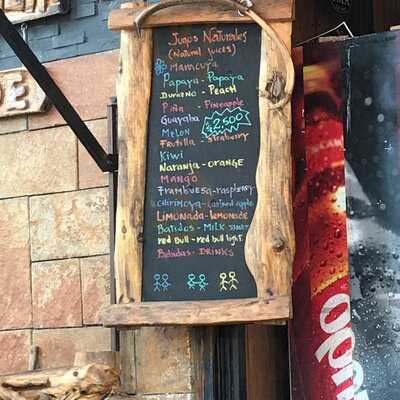 DE
Jugos Naturales
(Natural juices)
Maracuyá
Papaya - Papaya
Durazno - Peach
Piña - Pineapple
Guayaba
$2.500
Melon
Frutilla - Straberry
Kiwi
Naranja - orange
Mango
Frambuesa - raspberry
Chirimoya - Custard apple
Limonada - lemonade
Batidos - Milk
red Bull - red bull light
Bebidas - DRINKS